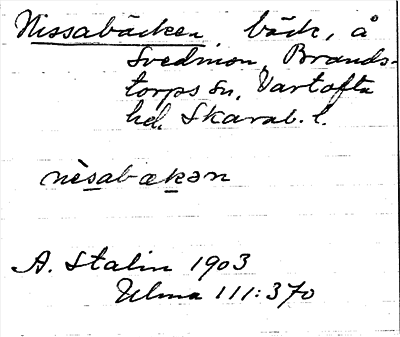 Nissabäcken bäck, å
Svedmon, Brands-
torps sn, Vartofta
hd, Skarab. l.
nèsabækən
A. Stalin 1903
Ulma 111:370